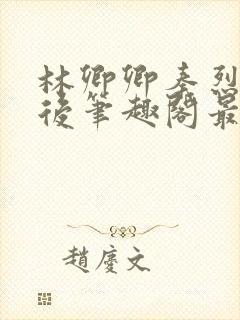 林卿卿秦烈
後筆趣閣最
趙慶文